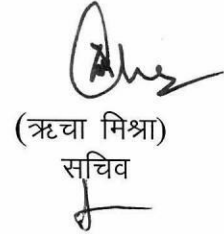 (ऋचा मिश्रा)
सचिव